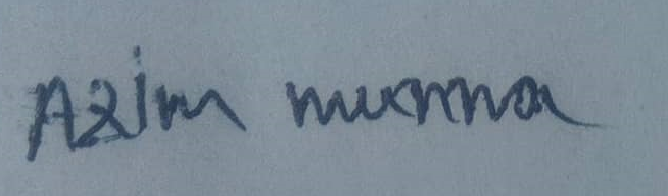 Azim munna